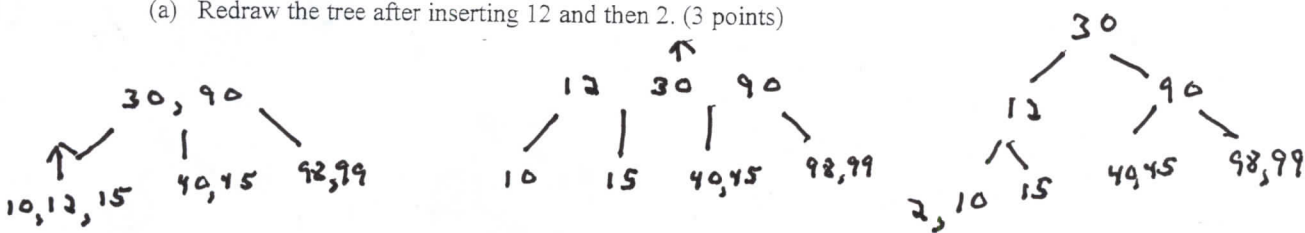 (a) Redraw the tree after inserting 12 and then 2. (3 points)
30, 90
10, 12, 15 40, 45 98, 99
12 30 90
10 15 40, 45 98, 99
30
12 90
2, 10 15 40, 45 98, 99